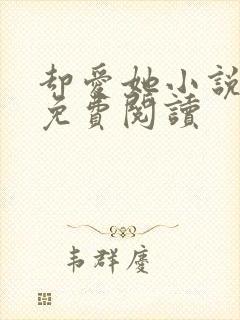 却愛她小說
免費閱讀
韦群慶